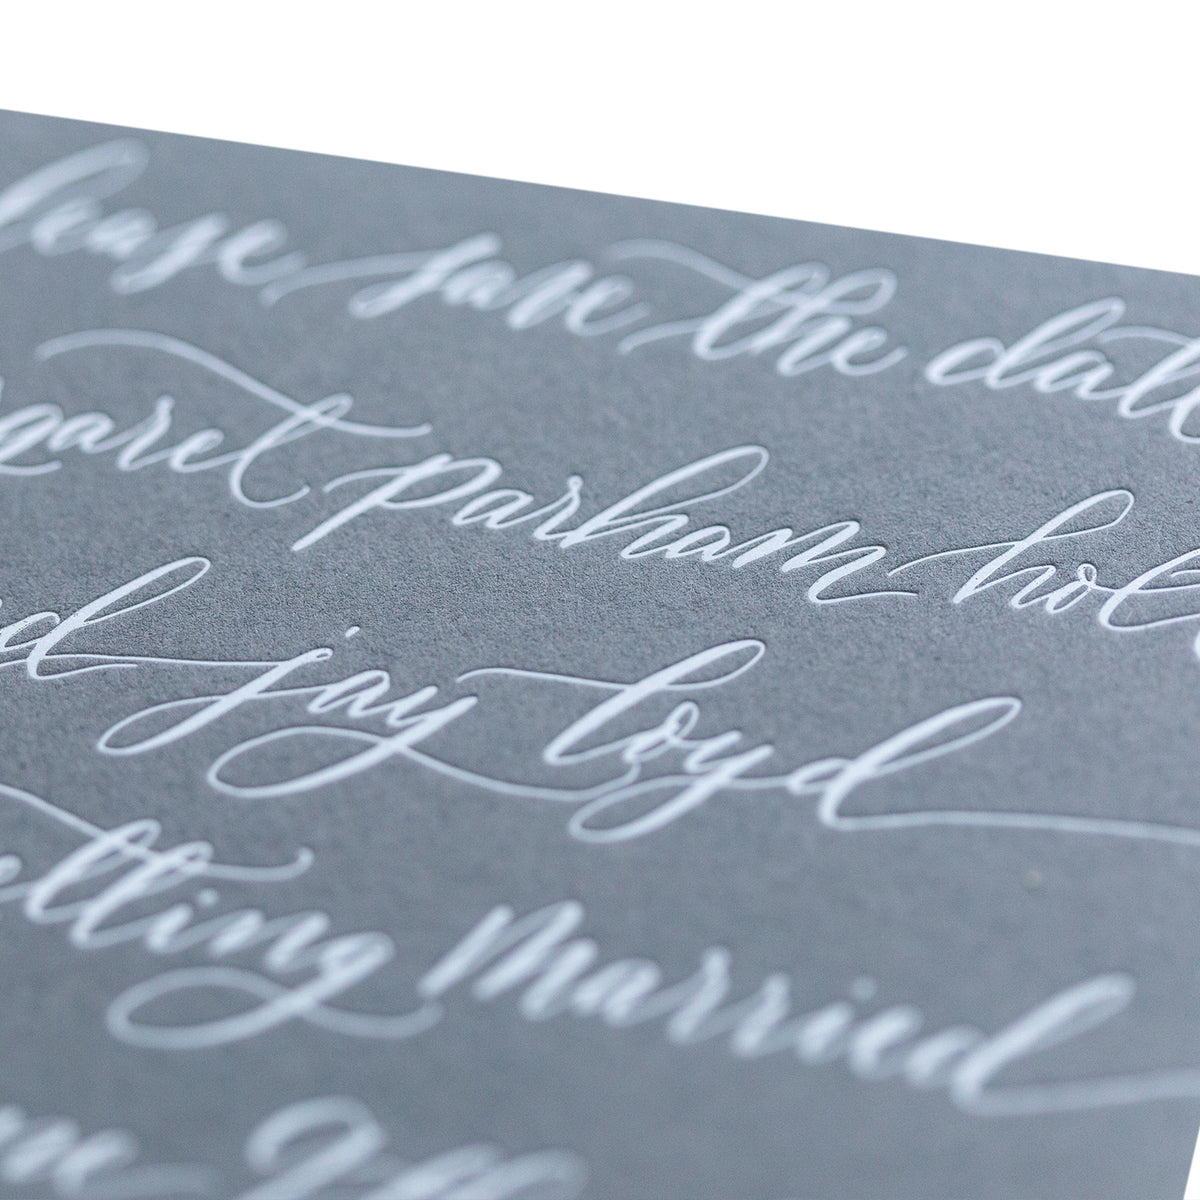 please save the date
margaret parham hol
d jay loyd
getting married